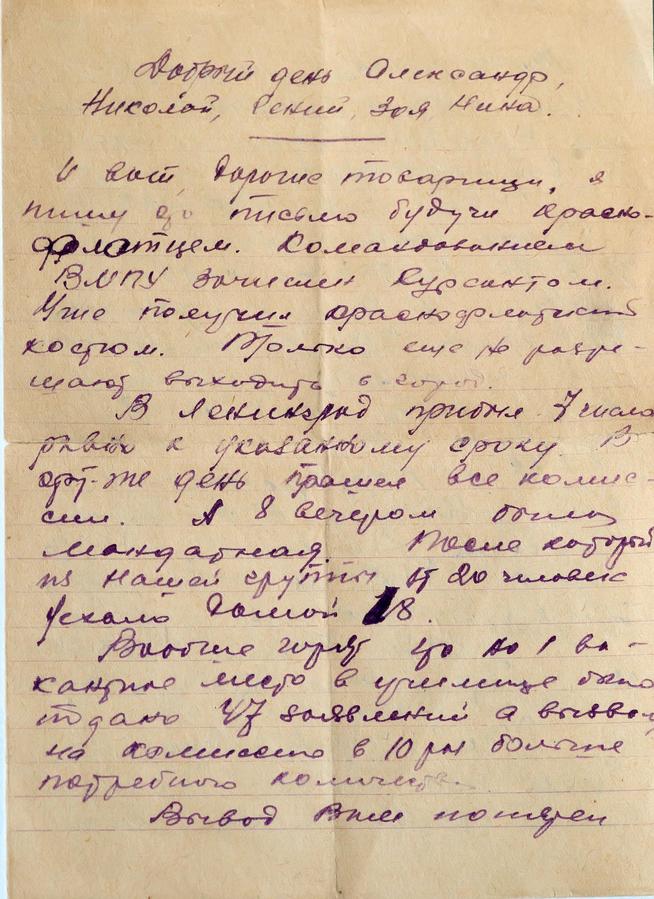 Добрый день Александр,
Николай, Зоя Нина.
И вот дорогие товарищи, я
пишу это письмо будучи красно-
флотцем. Командованием
ВМПУ зачислен курсантом.
Уже получил краснофлотский
костюм. Только еще не разре-
шают выходить в город.
В Ленинград прибыл 7 числа
равно к указанному сроку. В
этот-же день прошел все комис-
сии. А 8 вечером была
мандатная. После которой
из нашей группы от 20 человек
уехало домой 18.
Вообще говорят что на 1 ва-
кантное место в училище было
подано 47 заявлений а вызвали
на комиссию в 10 раз больше
потребного количества.
Вывод Вам понятен